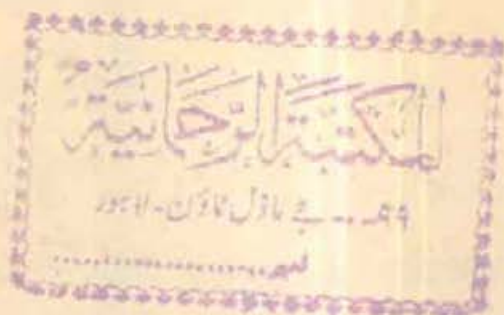 المكتبة الرحمانية
۹۹ ۔۔۔ جے ماڈل ٹاؤن - لاہور
نمبر ....................